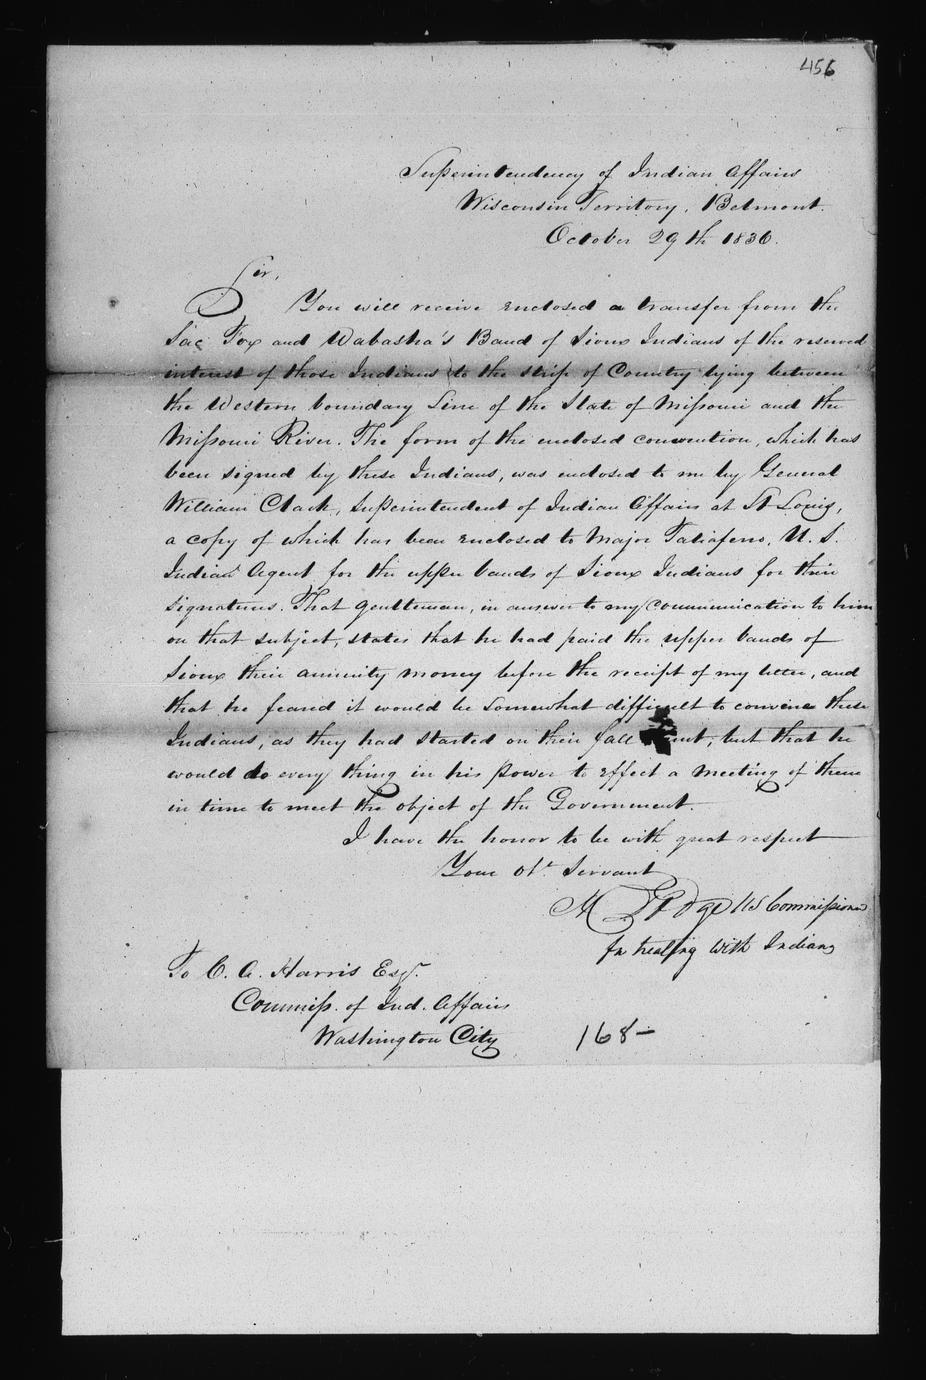 456
Superintendency of Indian Affairs
Wisconsin Territory, Belmont.
October 29th 1836.
Sir,
You will receive enclosed a transfer from the
Sac Fox and Wabasha's Band of Sioux Indians of the reserved
interest of those Indians to the strip of Country lying between
the Western boundary Line of the State of Missouri and the
Missouri River. The form of the enclosed convention, which has
been signed by these Indians, was enclosed to me by General
William Clark, Superintendent of Indian Affairs at St Louis,
a copy of which has been enclosed to Major Taliaferro, U. S.
Indian Agent for the upper bands of Sioux Indians for their
signatures. That gentleman, in answer to my communication to him
on that subject, states that he had paid the upper bands of
Sioux their annuity money before the receipt of my letter, and
that he feared it would be somewhat difficult to convene these
Indians, as they had started on their fall , but that he
would do every thing in his power to effect a meeting of them
in time to meet the object of the Government.
I have the honor to be with great respect
Your Obt. Servant
H Dodge US Commissioner
for treating with Indians
To C. A. Harris Esqr.
Commiss. of Ind. Affairs
Washington City
168-